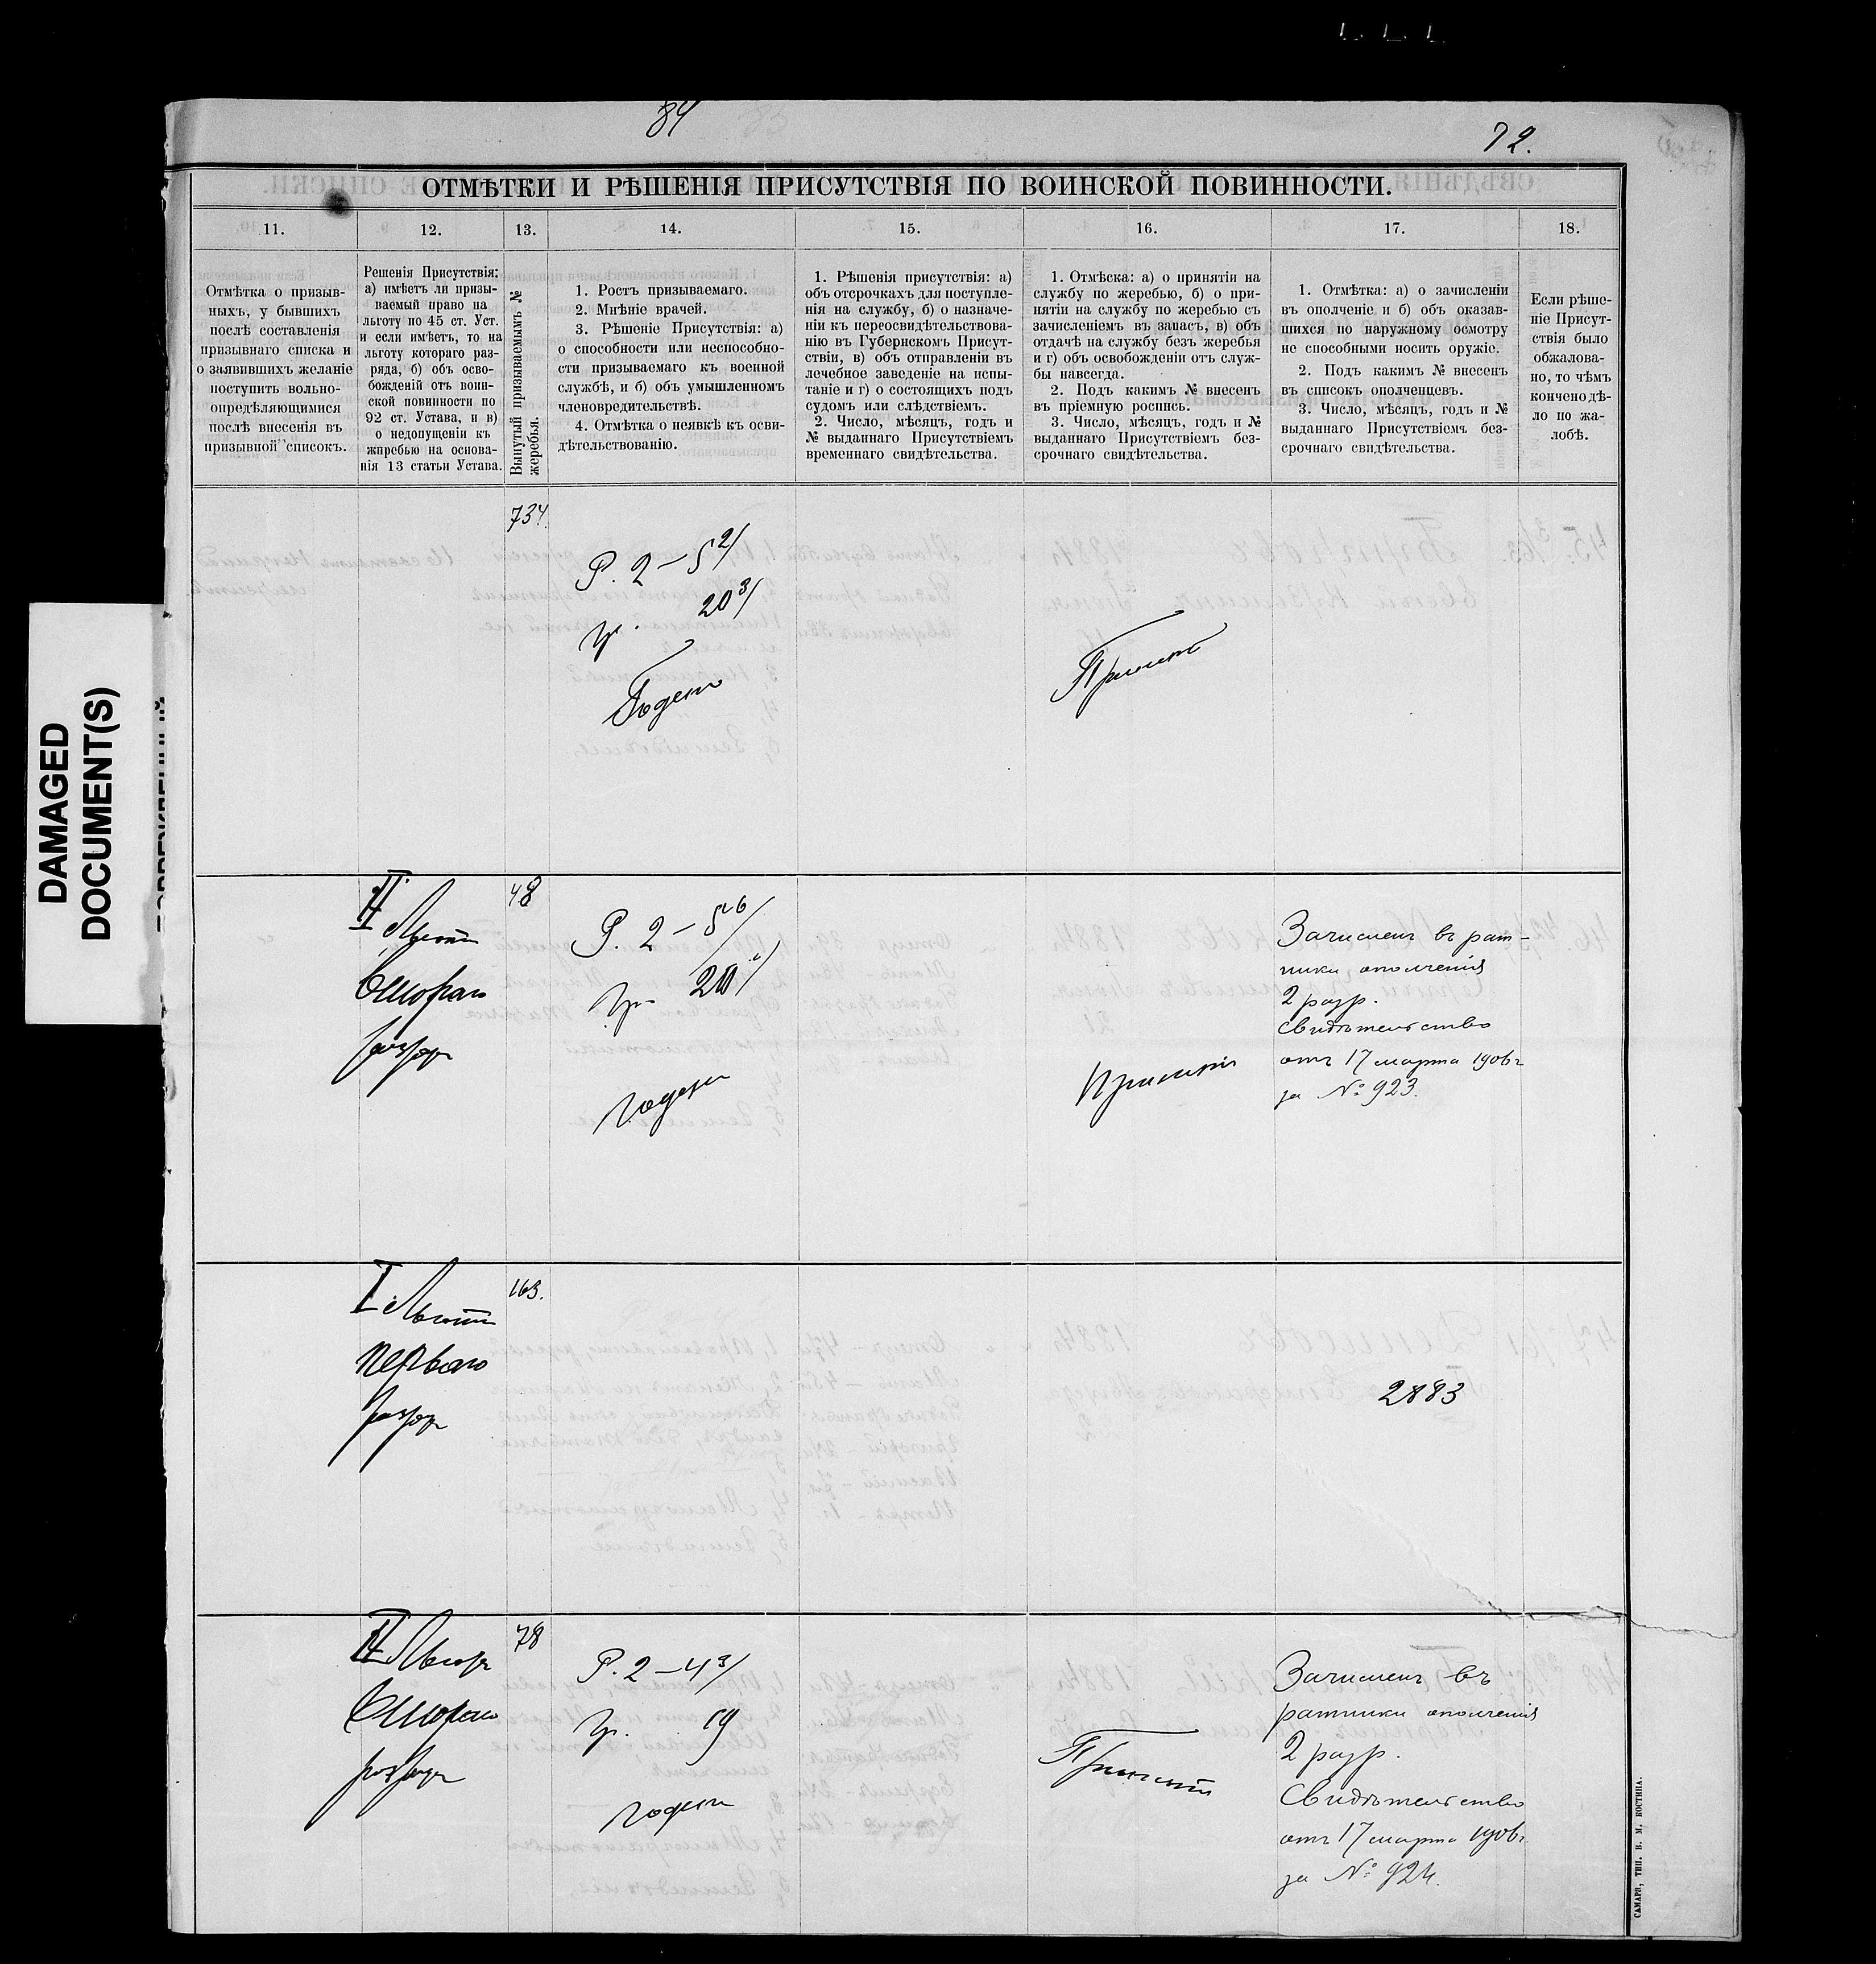 84
72.
ОТМѢТКИ И РѢШЕНІЯ ПРИСУТСТВІЯ ПО ВОИНСКОЙ ПОВИННОСТИ.
11.
12.
13.
14.
15.
16.
17.
18.
Отмѣтка о призыв-
ныхъ, у бывшихъ
послѣ составленія
призывнаго списка и
о заявившихъ желаніе
поступить вольно-
опредѣляющимися
послѣ внесенія въ
призывной списокъ.
Решенія Присутствія:
а) имѣетъ ли призы-
ваемый право на
льготу по 45 ст. Уст.
и если имѣетъ, то на
льготу котораго раз-
ряда, б) объ осво-
божденій отъ воин-
ской повинности по
92 ст. Устава, и в)
о недопущеніи къ
жпребью на основа-
нія 13 статьи Устава.
Вынутый призываемымъ №
жеребья.
1. Ростъ призываемаго.
2. Мнѣніе врачей.
3. Рѣшеніе Присутствія: а)
о способности или неспособно-
сти призываемаго къ военной
службѣ, и б) объ умышленномъ
членовредительствѣ.
4. Отмѣтка о неявкѣ къ осви-
дѣтельствованію.
1. Рѣшенія присутствія: а)
объ отсрочкахъ для поступле-
нія на службу, б) о назначе-
ніи къ переосвидѣтельствова-
нію въ Губернскомъ Присут-
ствіи, в) объ отправленіи въ
лечебное заведеніе на испы-
таніе и г) о состоящихъ подъ
судомъ или слѣдствіемъ.
2. Число, мѣсяцъ, годъ и
№ выданнаго Присутствіемъ
временнаго свидѣтельства.
1. Отмѣска: а) о принятіи на
службу по жеребью, б) о при-
нятіи на службу по жеребью съ
зачисленіемъ въ запасъ, в) объ
отдачѣ на службу безъ жеребья
и г) объ освобожденіи отъ служ-
бы навсегда.
2. Подъ какимъ № внесенъ
въ пріемную роспись.
3. Число, мѣсяцъ, годъ и №
выданнаго Присутствіемъ без-
срочнаго свидѣтельства.
1. Отмѣтка: а) о зачисленіи
въ ополченіе и б) объ оказав-
шихся по наружному осмотру
не способными носить оружіе.
2. Подъ какимъ № внесенъ
въ списокъ ополченцевъ.
3. Число, мѣсяцъ, годъ и №
выданнаго Присутствіемъ без-
срочнаго свидѣтельства.
Если рѣше-
ніе Присут-
ствія было
обжалова-
но, то чѣмъ
кончено дѣ-
ло по жа-
лобѣ.
734.
Р. 2 – 5 2/
гр. 20 3/
Годенъ
Принятъ
II Льготa
второго
разряда
48
Р. 2 – 5
гр. 20
годенъ
Принятъ
Зачисленъ въ рат-
ники ополченія
2 разр.
Свидѣтельство
отъ 17 марта 1906 г
за № 923.
I Льготa
перваго
разряд
163.
2883
II Льгота
второго
разряда
78
Р. 2 – 4 3/
гр. 19
годенъ
Принятъ
Зачисленъ въ
ратники ополченія
2 разр.
Свидѣтельство
отъ 17 марта 1906 г.
за № 924.
DAMAGED
DOCUMENT(S)
САМАРА, ТИП. В. М. КОСТИНА.